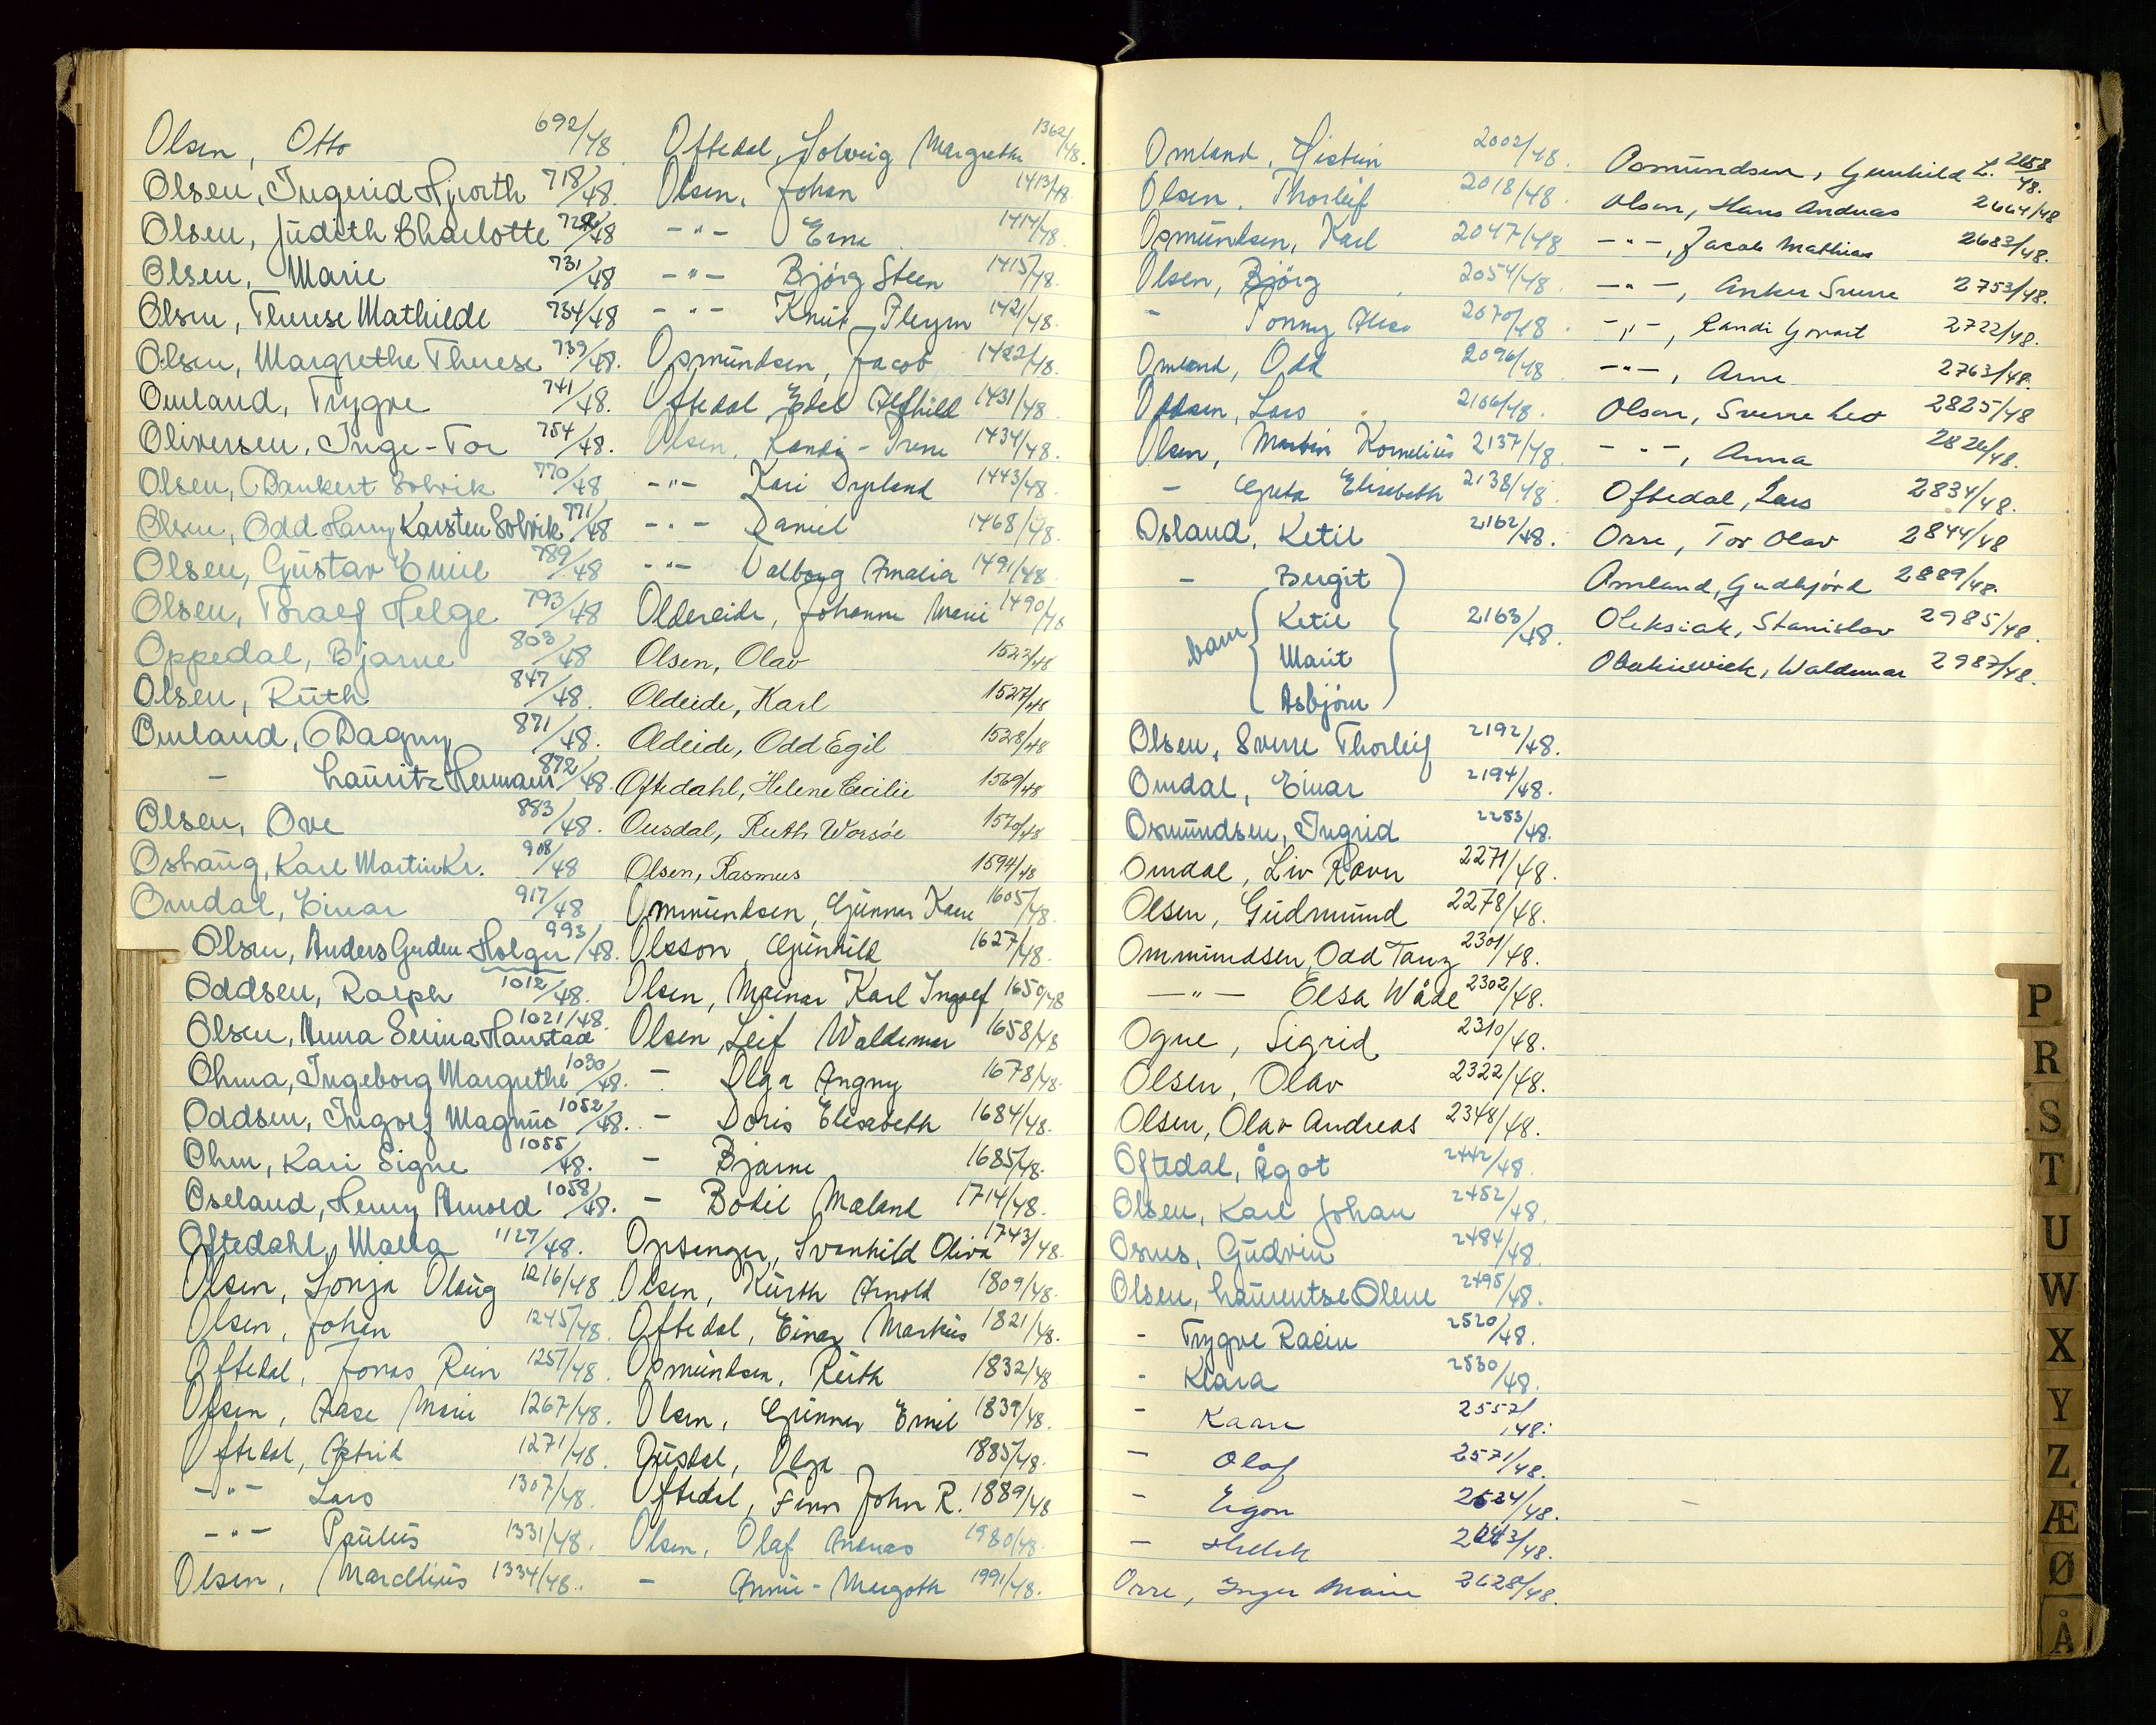 Olsen, Otto 692/48
Olsen, Ingerid Hjorth 718/48.
Olsen, Judith Charlotte 728/48
Olsen, Marie 731/48
Olsen, Therese Mathilde 734/48
Olsen, Margrethe Therese 739/48.
Omland, Trygve 741/48.
Oliversen, Inge-Tor 754/48.
Olsen, Dankert Solvik 770/48
Olsen, Odd Harry Karsten Solvik 771/48
Olsen, Gustav Emil 789/48
Olsen, Toralf Helge 793/48
Oppedal, Bjarne 803/48
Olsen, Ruth 847/48.
Omland, Dagny 871/48.
- Lauritz Hermann 872/48.
Olsen, Ove 883/48.
Oshaug, Karl Martin Kr. 908/48
Omdal, Einar 917/48
Olsen, Anders Gruden Holger 993/48.
Oddsen, Ralph 1012/48.
Olsen, Anna Serina Hanstad 1021/48.
Ohma, Ingeborg Margrethe 1030/48.
Oddsen, Ingolf Magnus 1052/48.
Ohm, Kari Signe 1055/48.
Oseland, Henry Arnold 1058/48.
Oftedahl, Malla 1127/48.
Olsen, Sonja Olaug 1216/48
Olsen, Johan 1245/48.
Oftedal, Jonas Rein 1251/48.
Olsen, Aase Marie 1267/48.
Oftedal, Astrid 1271/48.
-"- Lars 1307/48.
-"- Paulus 1331/48.
Olsen, Marcelius 1334/48.
Oftedal, Solveig Margrethe 1362/48.
Olsen, Johan 1413/48
-"- Erna 1414/48.
-"- Bjørg Steen 1415/48.
-"- Knut Pleym 1421/48.
Osmundsen, Jacob 1422/48.
Oftedal Edel Alfhild 1431/48
Olsen, Randi-Irene 1434/48.
-"- Kari Dypland 1443/48.
-"- Daniel 1468/48.
-"- Valborg Amalia 1491/48.
Oldereide, Johanne Marie 1490/48
Olsen, Olav 1522/48
Oldeide, Karl 1527/48
Oldeide, Odd Egil 1528/48
Oftedahl, Helene Cecilie 1569/48
Ousdal, Ruth Worsöe 1570/48
Olsen, Rasmus 1594/48
Ommundsen, Gunnar Kåre 1605/48.
Olsson, Gunhild 1627/48.
Olsen, Meinar Karl Ingolf 1650/48
Olsen Leif Waldemar 1658/48
- Olga Angny 1678/48.
- Doris Elisabeth 1684/48.
- Bjarne 1685/48.
- Bodil Mæland 1714/48.
Opsenger, Svanhild Oliva 1743/48.
Olsen, Kurth Arnold 1809/48.
Oftedal, Einar Markus 1821/48.
Osmundsen, Ruth 1832/48
Olsen, Gunnar Emil 1839/48.
Ousdal, Olga 1885/48.
Oftedal, Finn John R. 1889/48
Olsen, Olaf Andreas 1980/48.
- Annie-Margoth 1991/48.
Omland, Gistein 2002/48.
Olsen, Thorleif 2018/48.
Osmundsen, Karl 2047/48
Olsen, Bjørg 2054/48.
- Tonny Alise 2070/48.
Omland, Odd 2096/48
Oddsen, Lars 2106/48.
Olsen, Martin Kornelius 2137/48
- Greta Elisabeth 2138/48.
Osland, Ketil 2162/48.
- Bergit
barn Ketil 2163/48.
Marit
Asbjørn
Olsen, Sverre Thorleif 2192/48.
Omdal, Einar 2194/48.
Osmundsen, Ingrid 2253/48.
Omdal, Liv Ravn 2271/48.
Olsen, Gudmund 2278/48.
Ommundsen, Odd Tanz 2301/48.
-"- Elsa Wåde 2302/48.
Ogne, Sigrid 2310/48.
Olsen, Olav 2322/48.
Olsen, Olav Andreas 2348/48.
Oftedal, Ågot 2442/48.
Olsen, Karl Johan 2452/48.
Osnes, Gudrun 2484/48.
Olsen, Laurentse Olene 2495/48.
- Trygve Rasin 2520/48.
- Klara 2530/48.
- Kaare 2557/48.
- Olaf 2571/48.
- Eigon 2534/48.
- 2643/48.
Orre, Inger Marie 2628/48.
Osmundsen, Gunhild L. 2658/48.
Olsen, Hans Andreas 2664/48
-"-, Jacob Mathias 2683/48.
-"-, Anker Sverre 2753/48.
-"-, Randi 2722/48.
-"-, Arne 2763/48.
Olsen, Sverre Leo 2825/48
-"-, Anna 2826/48.
Oftedal, Lars 2834/48.
Orre, Tor Olav 2844/48
Omland, Gudbjörd 2889/48.
Oleksiak, Stanislav 2985/48.
Waldemar 2987/48.
P
R
S
T
U
W
X
Y
Z
Æ
Ø
Å